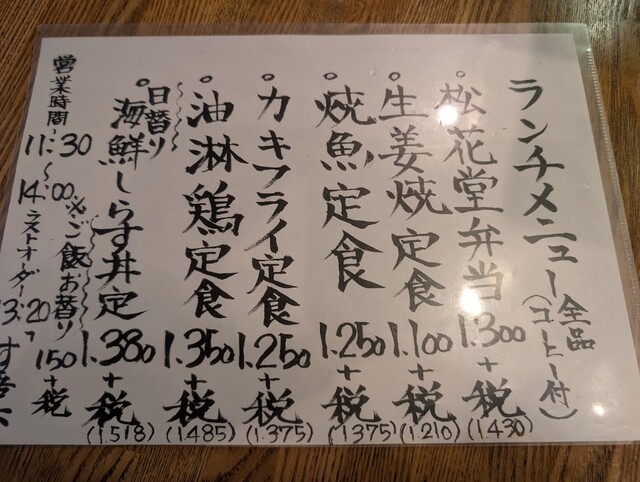 ランチメニュー 全品(コーヒー付)
。松花堂弁当 1.300+税(1.430)
。生姜焼定食 1.100+税(1.210)
。焼魚定食 1.250+税(1.375)
。カキフライ定食 1.250+税(1.375)
。油淋鶏定食 1.350+税(1.485)
。日替り
海鮮しらす丼定 1.380+税(1.518)
※ご飯お替り 150+税
営業時間 11:30〜14:00